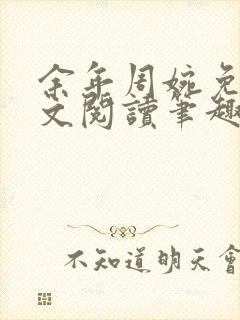 余年周婉免
文閱讀筆趣
不知道明天會